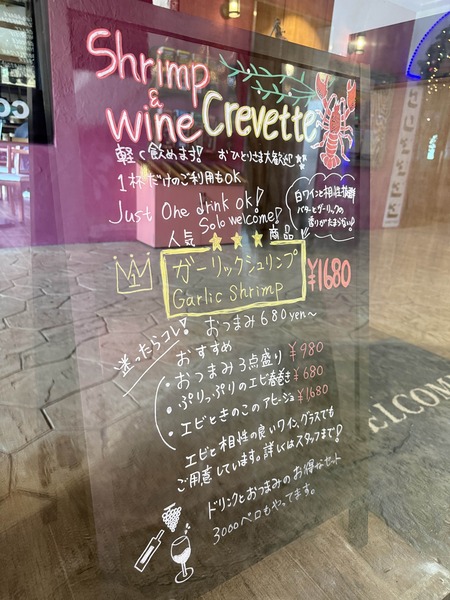 Shrimp
&
wine Crevette
軽く飲めます! おひとりさま大歓迎!
1杯だけのご利用もOK
Just One drink ok!
Solo welcome!
白ワインと相性抜群
バターとガーリックの
香りがたまらない!
人気 商品
1
ガーリックシュリンプ
Garlic Shrimp
¥1680
おつまみ 680yen〜
迷ったらコレ!
おすすめ
・おつまみ3点盛り ¥980
・ぷりっぷりのエビ春巻き ¥680
・エビときのこのアヒージョ ¥1680
エビと相性の良いワイン、グラスでも
ご用意しています。詳しくはスタッフまで!
ドリンクとおつまみのお得なセット
3000ベロもやってます。
WELCOME